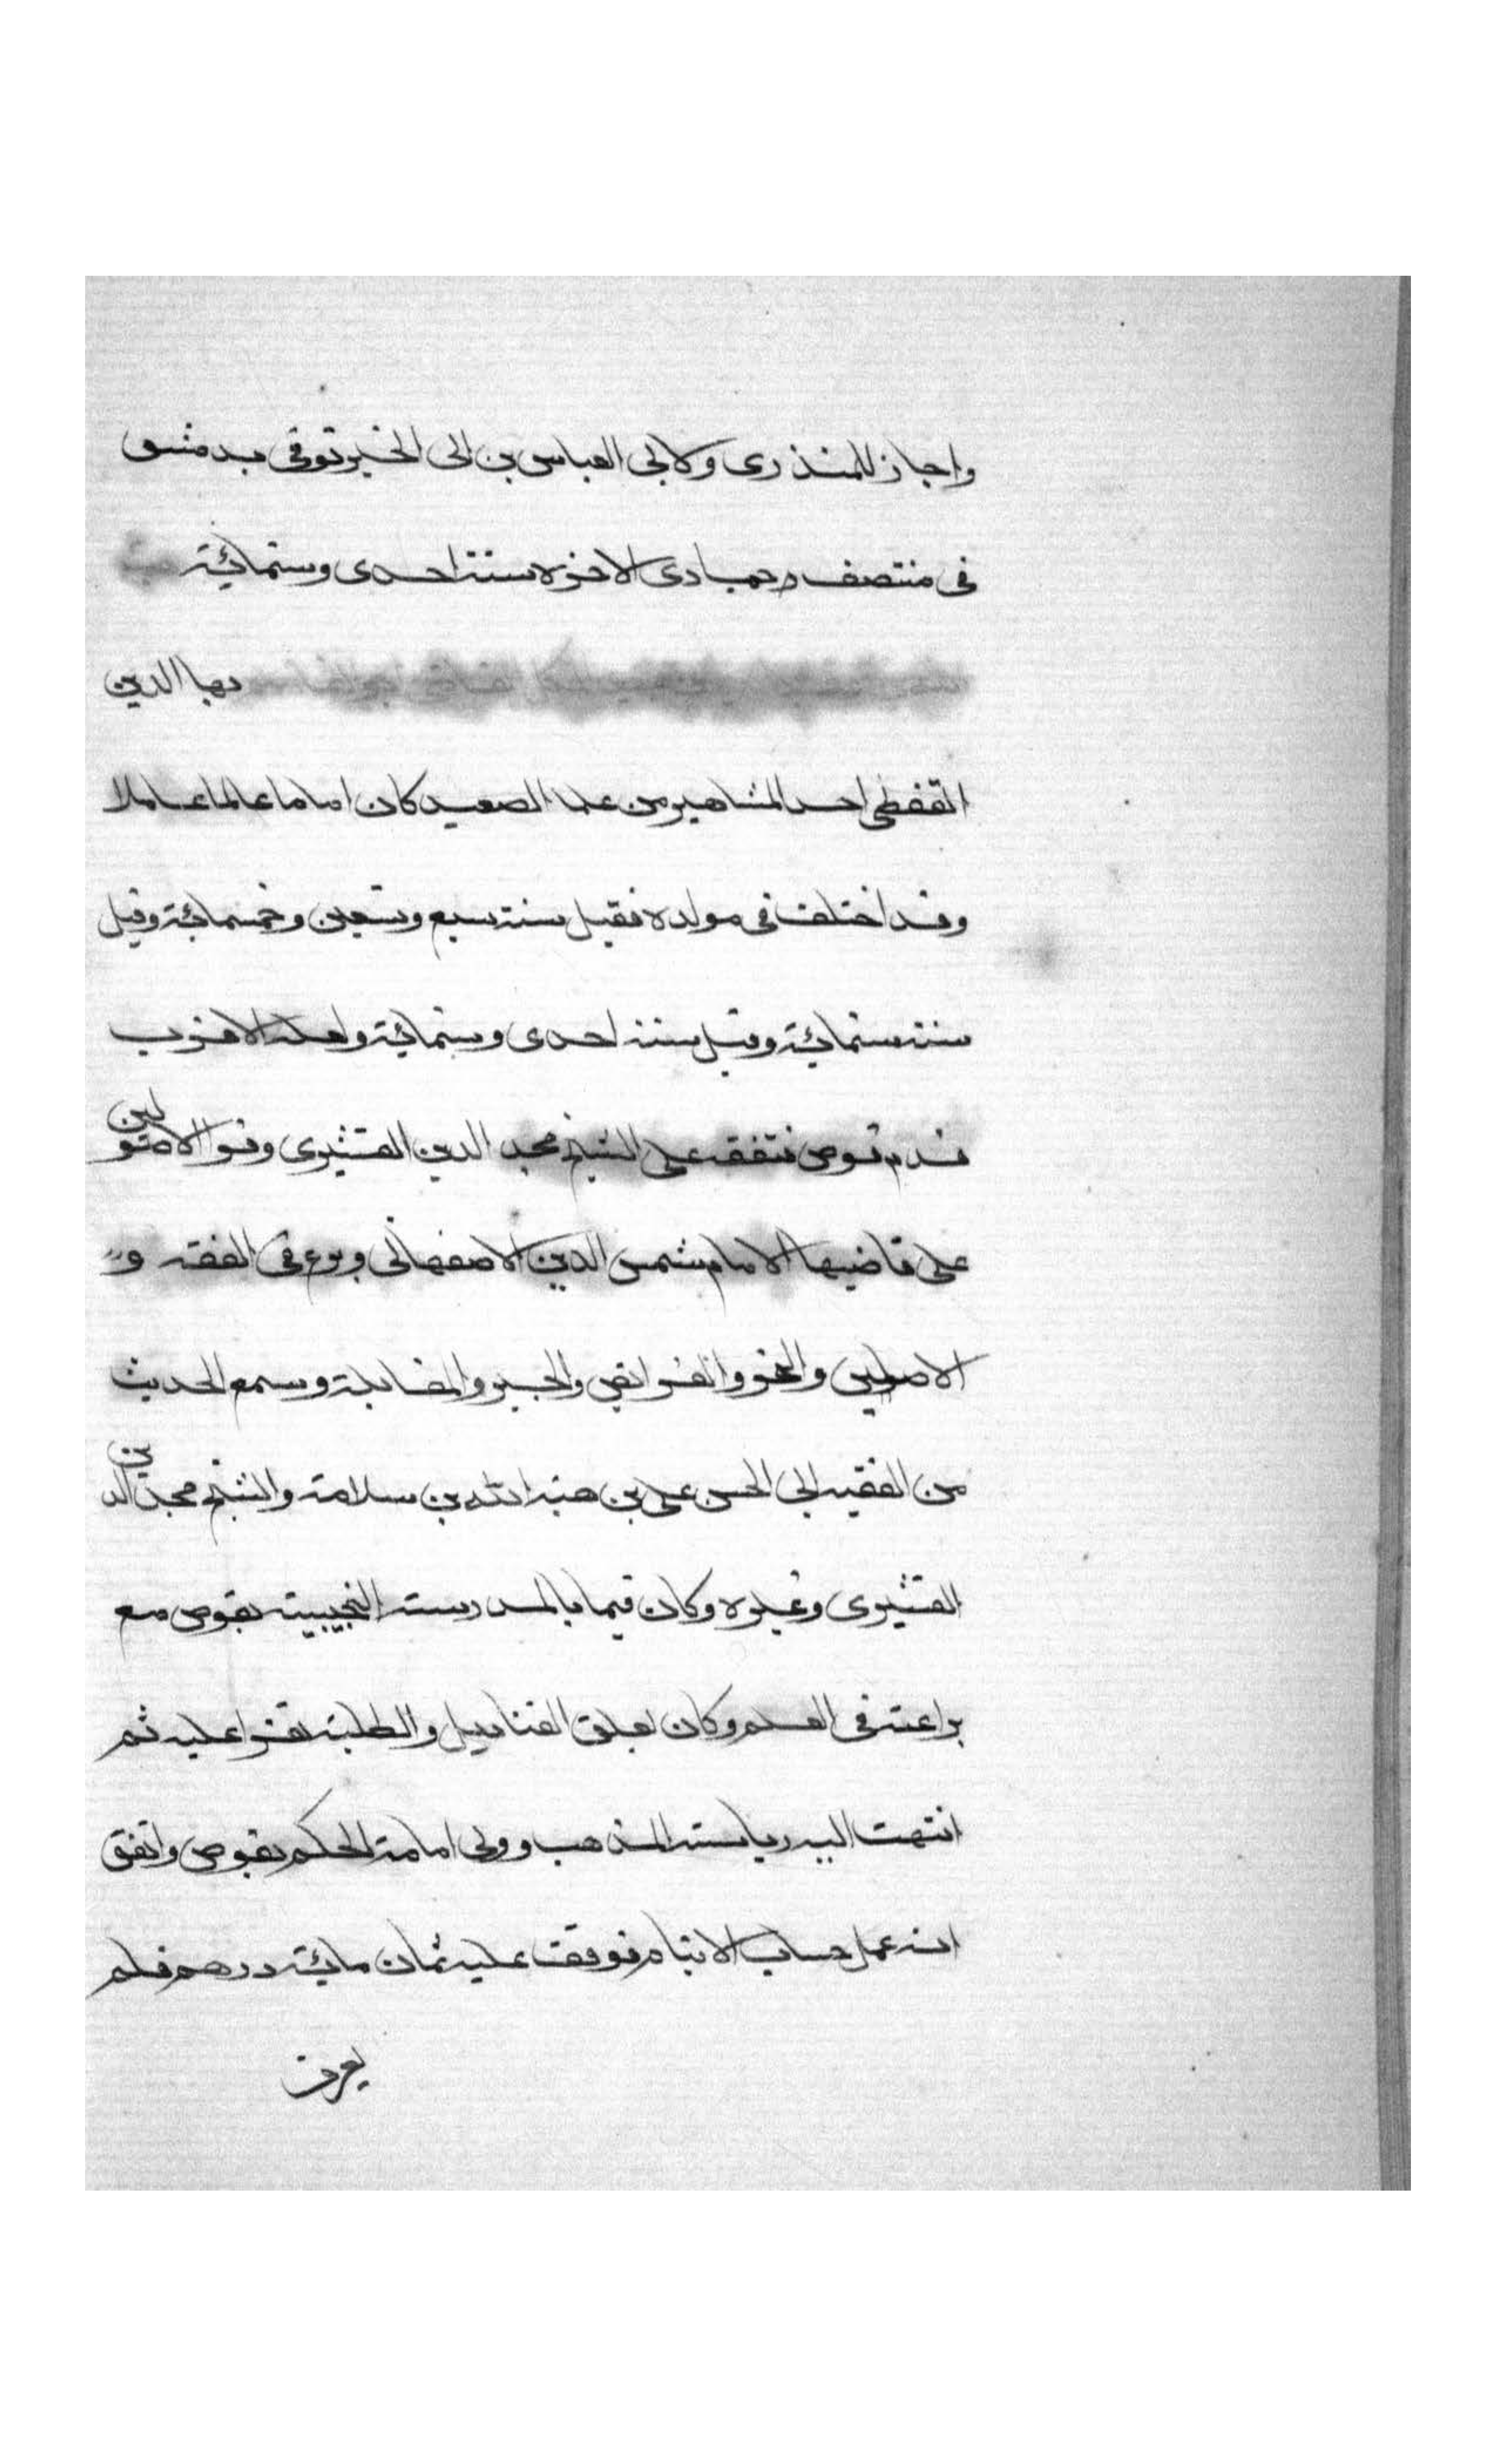 واجاز للمنذرى ولابى العباس بن ابى الخير توفى بدمشق
فى منتصف جمادى الاخرة سنة احدى وستمائة
بها الدين
القفطى احد المشاهير من علما الصعيد كان اماما عالما عاملا
وقد اختلف فى مولده فقيل سنة سبع وتسعين وخمسمائة وقيل
سنة ستمائة وقيل سنة احدى وستمائة ولعله الاقرب
قدم قوص فتفقه على الشيخ مجد الدين القشيرى وقرا الاصولين
على قاضيها الامام شمس الدين الاصفهانى وبرع فى الفقه و
الاصولين والنحو والفرائض والجبر والمقابلة وسمع الحديث
من الفقيه ابى الحسن على بن هبة الله بن سلامة والشيخ مجد الدين
القشيرى وغيره وكان قيما بالمدرسة النجيبية بقوص مع
براعته فى العلم وكان يعلق القناديل والطلبة تقرا عليه ثم
انتهت اليه رياسة المذهب وولى امامة الحكم بقوص واتفق
انه عمل حساب الايتام فوقف عليه ثمان مائة درهم فلم
يعرف